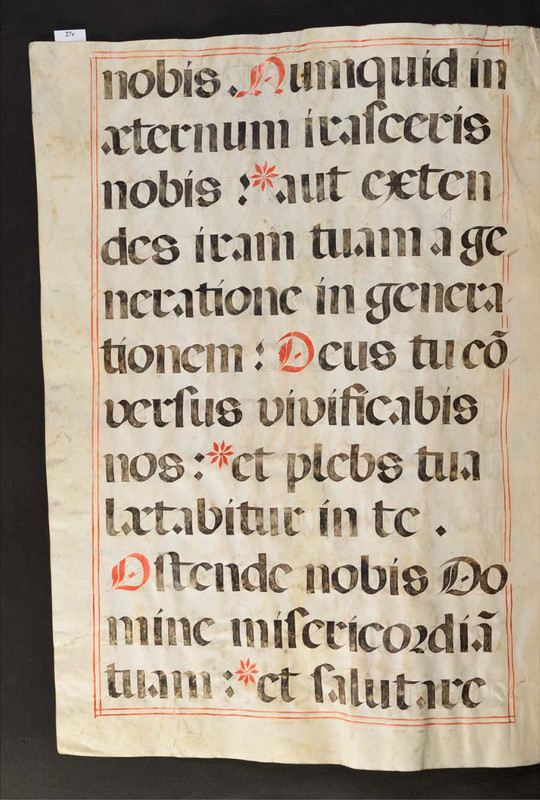 27v
nobis. Numquid in
æternum iraſceris
nobis : * aut exten
des iram tuam a ge
neratione in genera
tionem : Deus tu cõ
verſus vivificabis
nos : * et plebs tua
lætabitur in te .
Oſtende nobis Do
mine miſericordiã
tuam : * et ſalutare